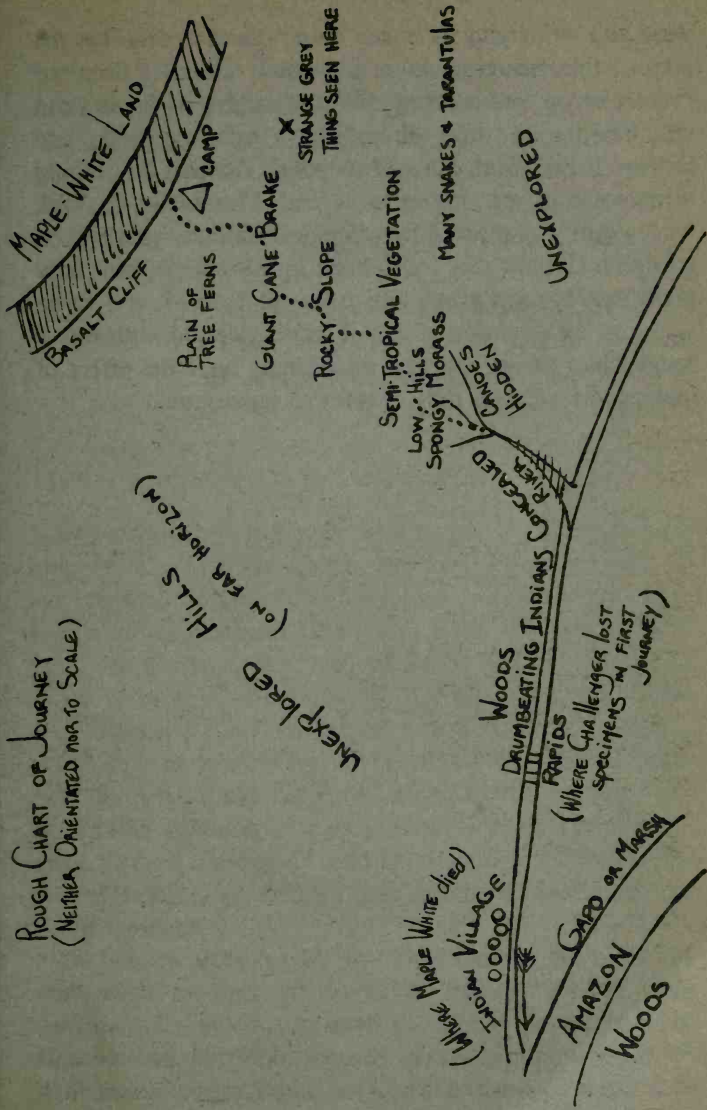 ROUGH CHART OF JOURNEY
(NEITHER ORIENTATED NOR TO SCALE)
MAPLE-WHITE LAND
BASALT CLIFF
CAMP
PLAIN OF
TREE FERNS
GIANT CANE BRAKE
X
STRANGE GREY
THING SEEN HERE
ROCKY SLOPE
SEMI-TROPICAL VEGETATION
MANY SNAKES & TARANTULAS
LOW HILLS
SPONGY MORASS
UNEXPLORED
CANOES
HIDDEN
CONCEALED
RIVER
UNEXPLORED HILLS
(ON FAR HORIZON)
WOODS
DRUMBEATING INDIANS
RAPIDS
(WHERE CHALLENGER LOST
SPECIMENS IN FIRST
JOURNEY)
(WHERE MAPLE WHITE DIED)
INDIAN VILLAGE
OOOOO
GAPO OR MARSH
AMAZON
WOODS